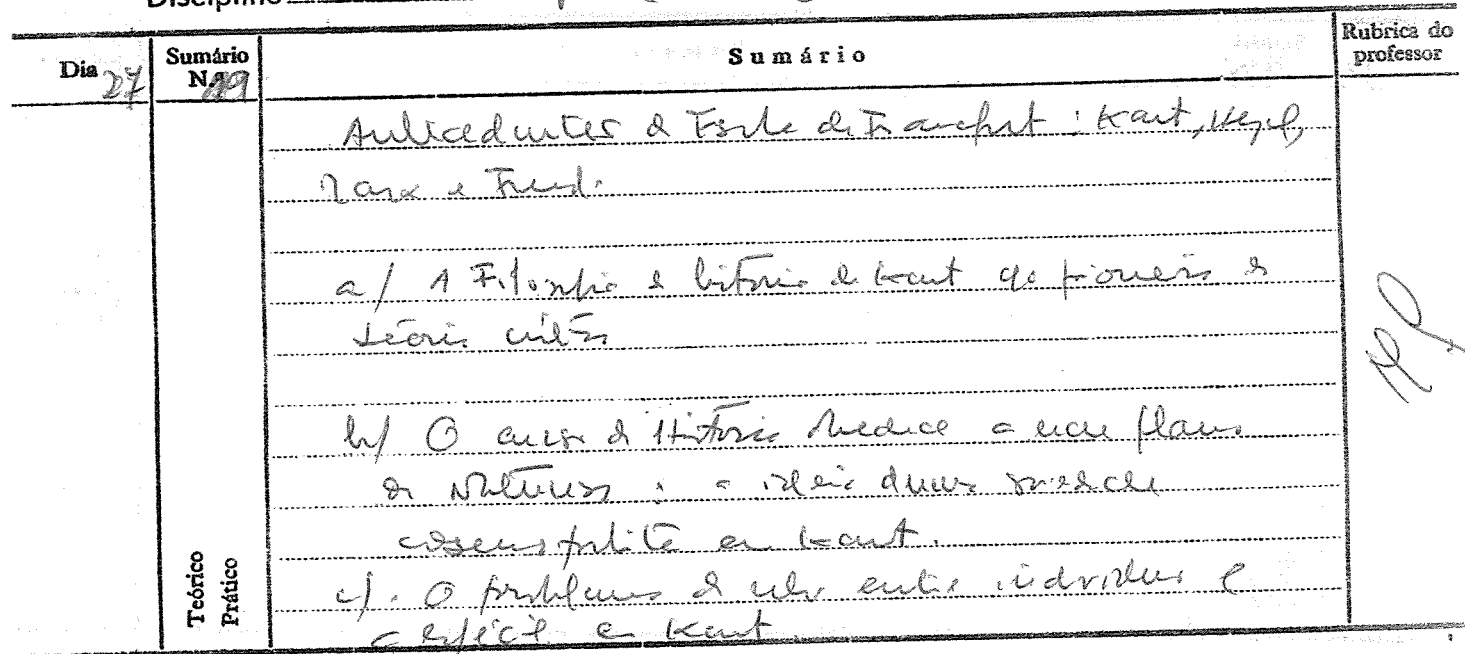 Disciplina
Dia 27
Sumário N.º 19
Sumário
Rubrica do professor
Antecedentes da Escola de Francfort : Kant, Hegel,
Marx e Freud.
a/ A Filosofia da história de Kant como pioneira da
teoria crítica
b/ O curso da História Mundial e um plano
da Natureza : a ideia duma sociedade
cosmopolita em Kant.
c/. O problema da relação entre indivíduo e
a espécie em Kant.
Teórico
Prático